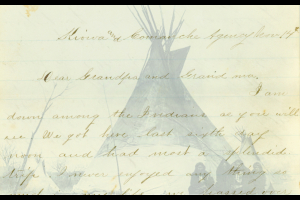 Kiowa & Comanche Agency Nov 14th
Dear Grandpa and Grand ma,
I am
down among the Indians as you will
see. We got here last sixth day
noon and had most a splendid
trip I never enjoyed any thing so